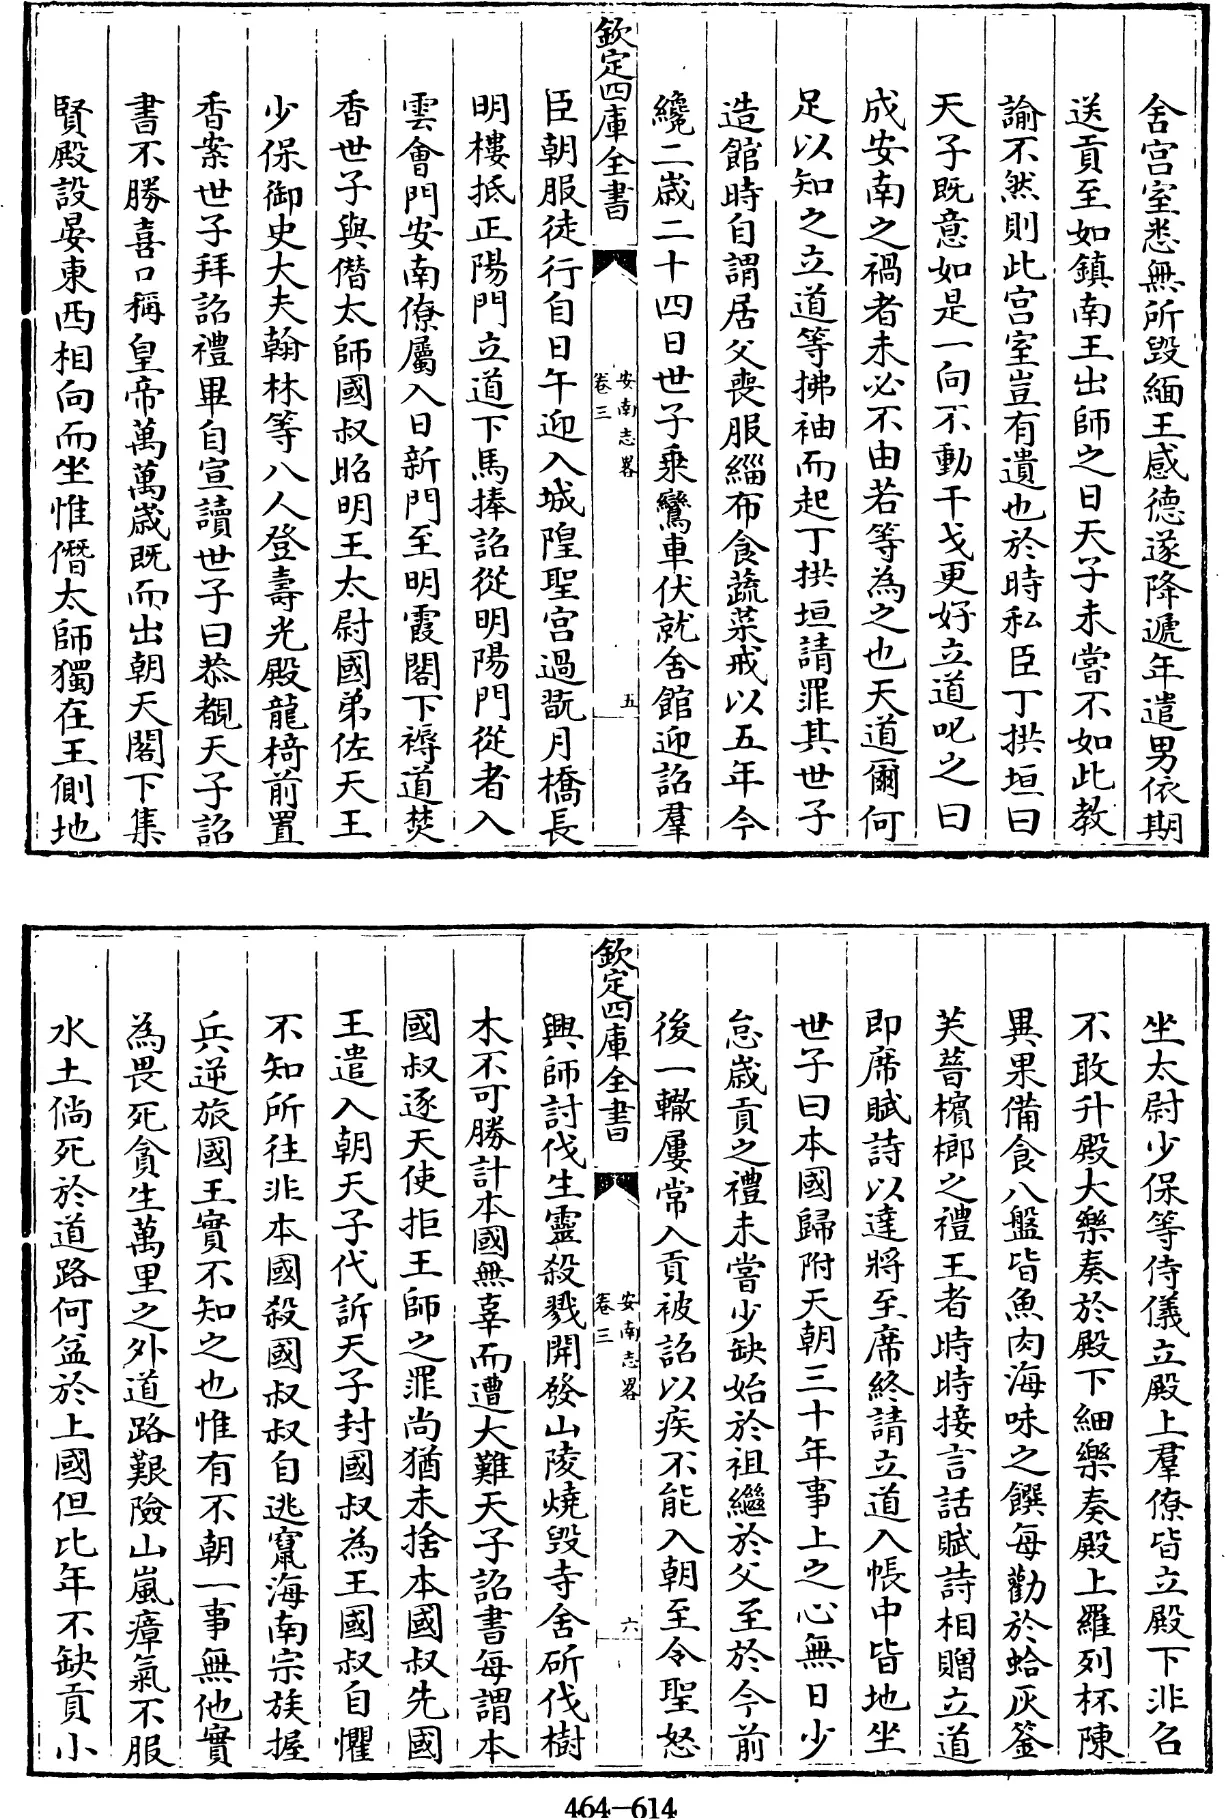 舍宫室悉無所毁緬王感德遂降遞年遣男依期
送貢至如鎮南王出師之日天子未嘗不如此教
諭不然則此宫室豈有遺也於時私臣丁拱垣曰
天子既意如是一向不動干戈更好立道叱之曰
成安南之禍者未必不由若等為之也天道爾何
足以知之立道等拂袖而起丁拱垣請罪其世子
造館時自謂居父喪服緇布食蔬菜戒以五年今
纔二歲二十四日世子乘鸞車伏就舍館迎詔羣
欽定四庫全書
安南志畧
卷三
五
臣朝服徒行自日午迎入城隍聖宫過翫月橋長
明樓抵正陽門立道下馬捧詔從明陽門從者入
雲會門安南僚屬入日新門至明霞閣下褥道焚
香世子與僭太師國叔昭明王太尉國弟佐天王
少保御史大夫翰林等八人登壽光殿龍椅前置
香案世子拜詔禮畢自宣讀世子曰恭覩天子詔
書不勝喜口稱皇帝萬萬歲既而出朝天閣下集
賢殿設晏東西相向而坐惟僭太師獨在王側地
坐太尉少保等侍儀立殿上羣僚皆立殿下非名
不敢升殿大樂奏於殿下細樂奏殿上羅列杯陳
異果備食八盤皆魚肉海味之饌每勸於蛤灰簽
芙蒥檳榔之禮王者時時接言話賦詩相贈立道
即席賦詩以達將至席終請立道入帳中皆地坐
世子曰本國歸附天朝三十年事上之心無日少
怠歲貢之禮未嘗少缺始於祖繼於父至於今前
後一轍屢常入貢被詔以疾不能入朝至令聖怒
欽定四庫全書
安南志畧
卷三
六
興師討伐生靈殺戮開發山陵燒毁寺舍斫伐樹
木不可勝計本國無辜而遭大難天子詔書每謂本
國叔逐天使拒王師之罪尚猶未捨本國叔先國
王遣入朝天子代訴天子封國叔為王國叔自懼
不知所往非本國殺國叔叔自逃竄海南宗族握
兵逆旅國王實不知之也惟有不朝一事無他實
為畏死貪生萬里之外道路艱險山嵐瘴氣不服
水土倘死於道路何益於上國但比年不缺貢小
464—614